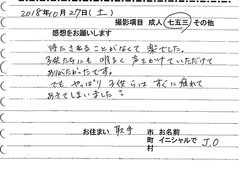 2018年10月27日(土)
撮影項目 成人 七五三 その他
感想をお願いします
待たされることがなくて楽でした。
子供たちにも明るく声をかけていただけて
ありがたかったです。
でも やっぱり 子供らは すぐに疲れて
あきてしまいました
お住まい 取手 市 町 村
お名前 イニシャルで J.O